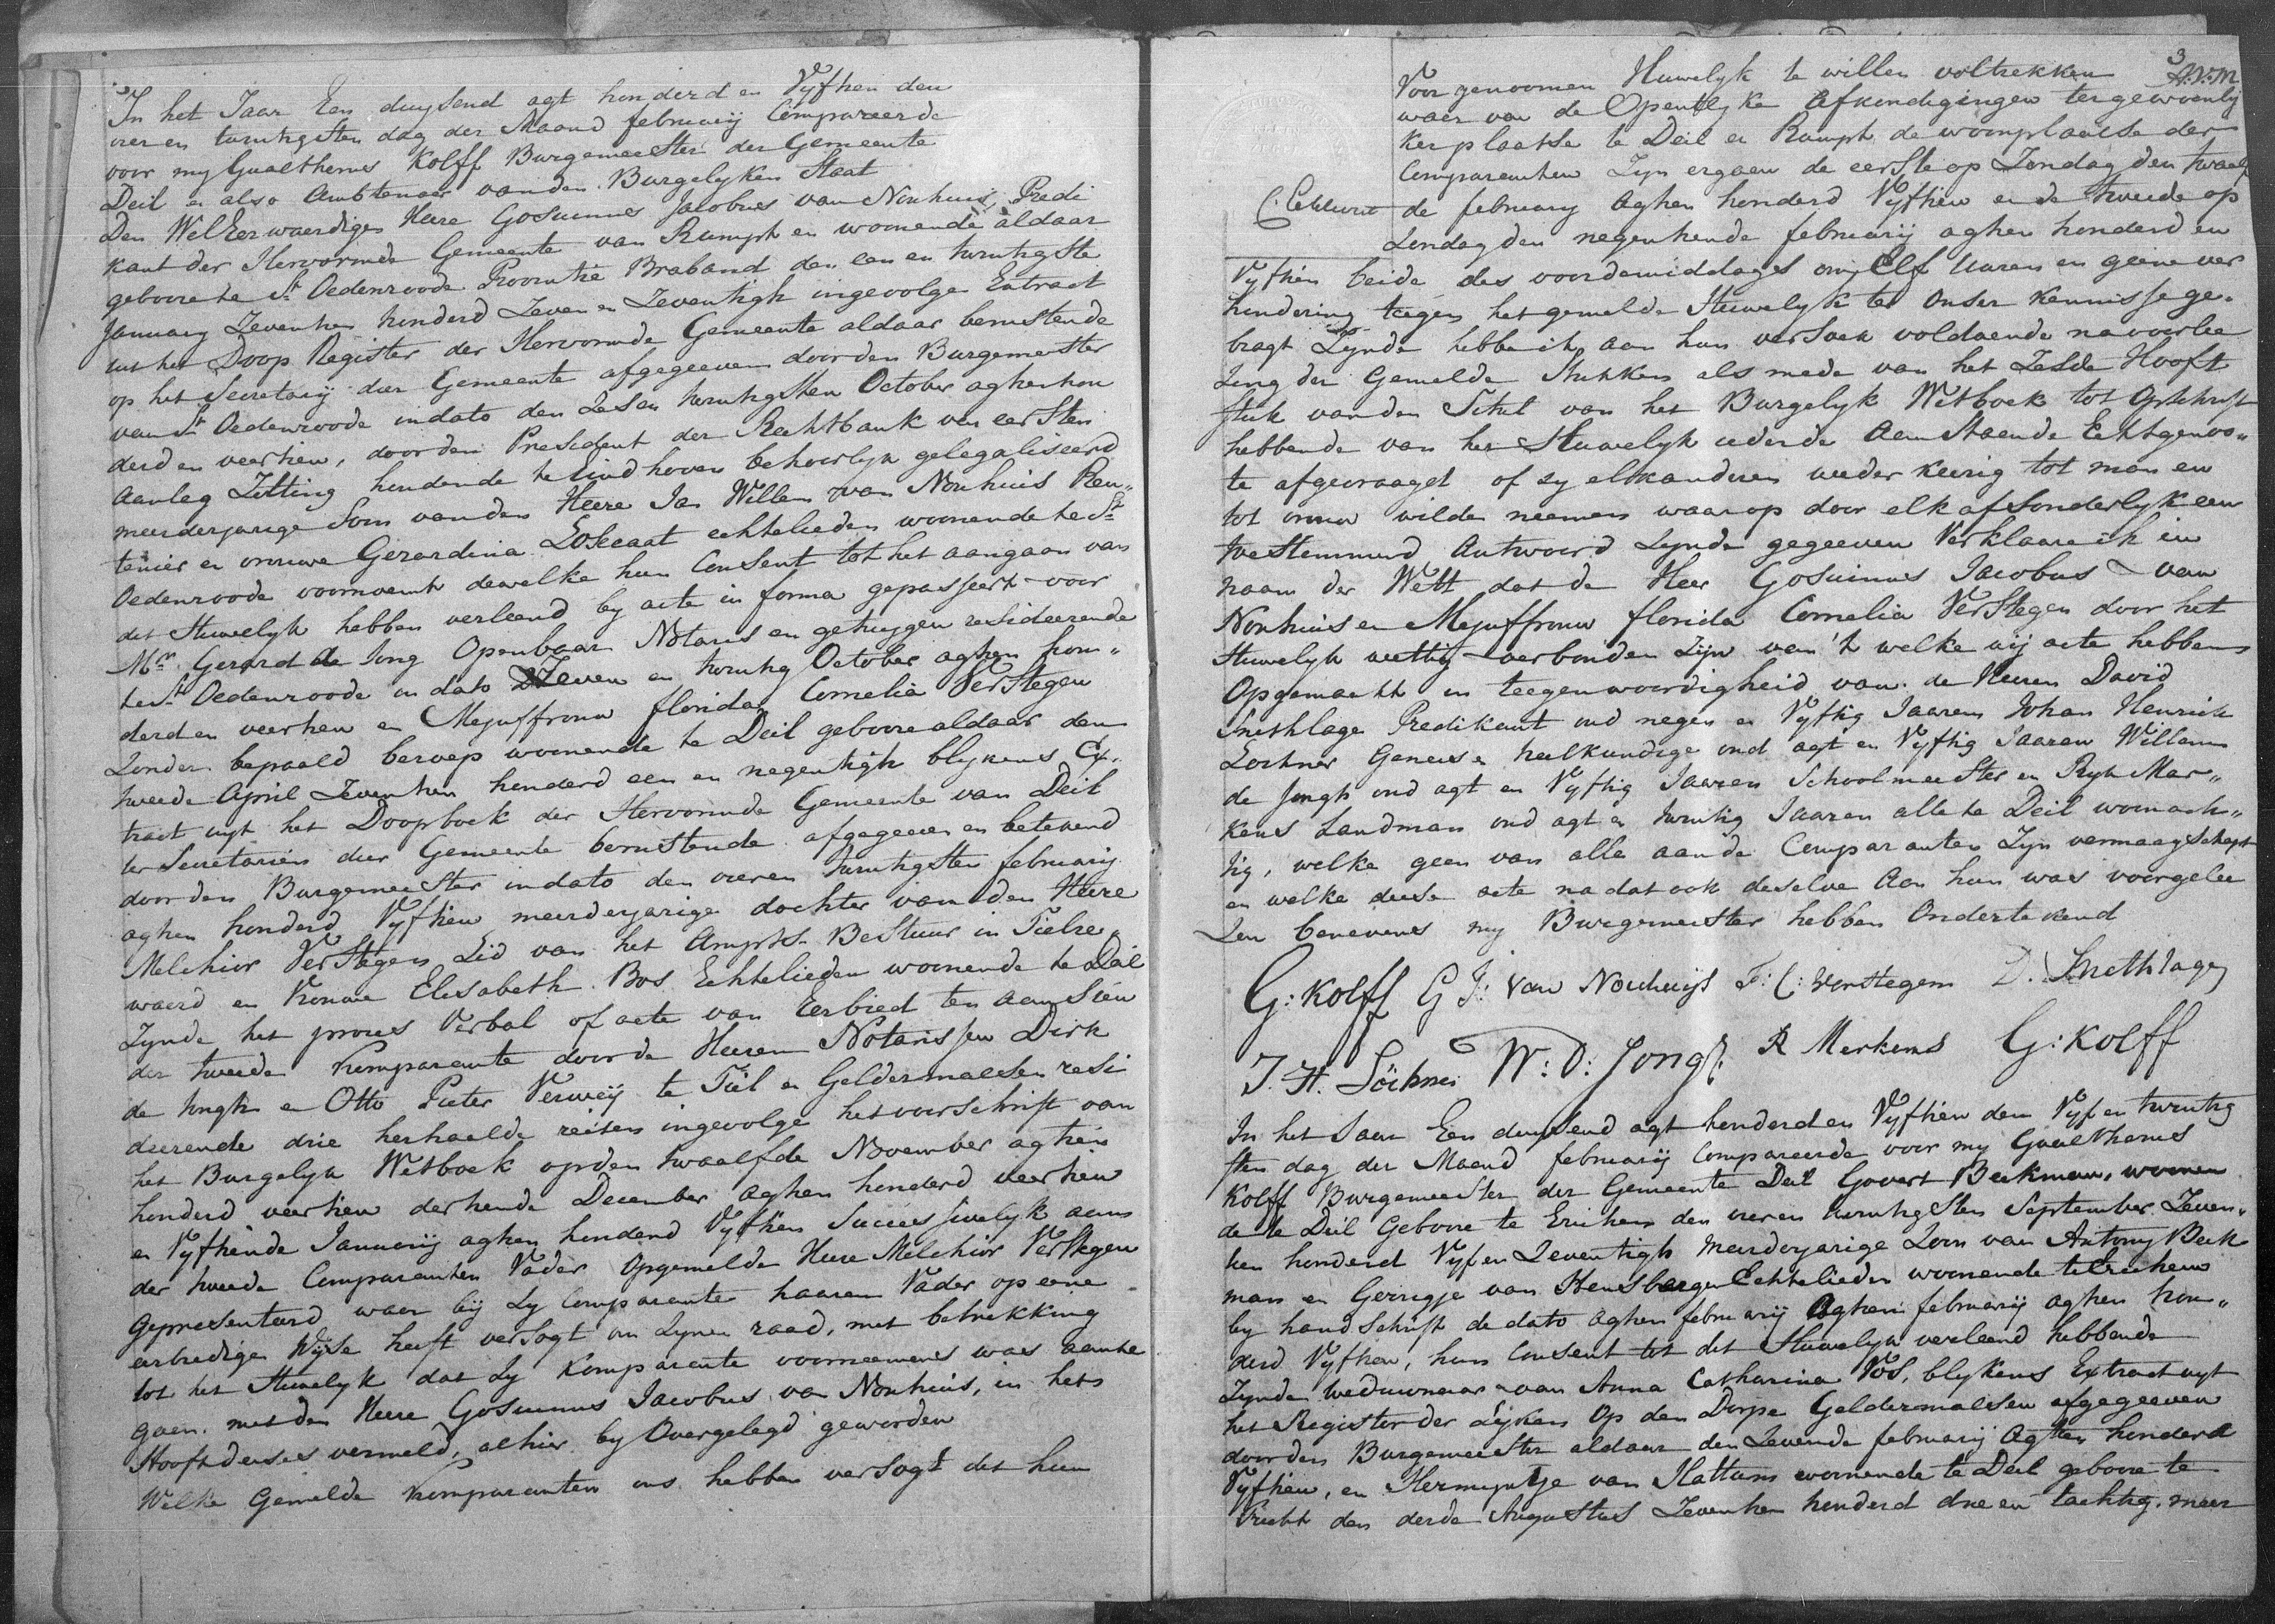 In het Jaar Een duysend agt honderd en Vyftien den
vier en twintigsten dag der Maand februarij Compareerde
voor my Gualtherus Kolff Burgemeester der Gemeente
Deil en also Ambtenaar van den Burgelyken Staat
Den WelEerwaardigen Heere Gosuinus Jacobus van Nouhuis, Predi
kant der Hervormde Gemeente van Rumpt en woonende aldaar
geboore te St Oedenroode Provintie Braband den een en twintigste
January Zeventien honderd Zeven en Zeventigh ingevolge Extract
uit het Doop Register der Hervormde Gemeente aldaar berustende
op het Secretary dier Gemeente afgegeeven door den Burgemeester
van St Oedenroode in dato den Zes en twintigsten October agtien hon
derd en veertien, door den President der Rechtbank van eersten
Aanleg Zitting houdende te Eindhoven behoorlyk gelegaliseerd
meerderjarige Soon van den Heere Jan Willem van Nouhuis Ren„
tenier en vrouwe Gerardina Loskaat echtelieden woonende te St
Oedenroode voornoemt dewelke hun Consent tot het aangaan van
dit Huwelyk hebben verleend by acte in forma gepasseert voor
Mr Gerard de Jong Openbaar Notaris en getuygen resideerende
te St Oedenroode in dato Zeven en twintig October agtien hon„
derd en veertien en Mejuffrouw florida Cornelia VerStegen
Zonder bepaald beroep woonende te Deil geboore aldaar den
tweede April Zeventien honderd een en negentigh blykens Ex„
tract uyt het Doopboek der Hervormde Gemeente van Deil
ter Secretarien dier Gemeente berustende afgegeeven en getekend
door den Burgemeester in dato den vier en twintigsten februarij
agtien honderd Vyftien meerderjarige dochter van den Heere
Melchior VerStegen Lid van het Ampts BeStuur in Tielre„
waard en Vrouwe Elisabeth Bos Echtelieden woonende te Deil
Zynde het proces Verbal of acte van Eerbied ten aansien
der tweede Comparante door de Heeren Notarissen Dirk
de Jongh en Otto Pieter Verweij te Tiel en Geldermalsen resi
deerende drie herhaelde reisen ingevolge het voorschrift van
het Burgelyk Wetboek op den twaalfde November agtien
honderd veertien dertiende December agtien honderd veertien
en Vyftiende Januarij agtien honderd Vyftien Successivelyk aan
der tweede Comparanten Vader Opgemelde Heere Melchior VerStegen
gepresenteerd waar bij Zy Comparante haaren Vader op eene
eerbiedige Wyse heeft versogt om Zynen raad, met betrekking
tot het Huwelyk dat Zy Komparante voorneemens was aan te
gaen met den Heere Gosuinus Jacobus van Nouhuis, in het
Hooft deeses vermeld, alhier by Overgelegd geworden
Welke Gemelde Komparanten ons hebben versogt dit hun
3
Voorgenoomen Huwelyk te willen voltrekken
waer van de Opentlyke Afkondigingen ter gewoonly
ker plaatse te Deil en Rumpt de woonplaatse der
Comparanten Zyn ergaen de eerste op Zondag den twaalf
de february agtien honderd Vyftien en de tweede op
Zondag den negentiende februarij agtien honderd en
Vyftien beide des voordemiddages om Elf uuren en geene ver
hindering teegen het gemelde Huwelyk ter Onser Kennisse ge„
bragt Zynde hebbe ik aan hun versoek voldaende na voorlee
sing der Gemelde Stukken als mede van het Zesde Hooft
stuk van den Titel van het Burgelyk Wetboek tot Opschrift
hebbende van het Huwelyk ieder de Aanstaende Echtgenoo„
te afgevraagd of zy elkanderen weder keerig tot man en
tot vrouw wilde neemen waarop door elk afsonderlyk een
toestemmend Antwoord Zynde gegeeven Verklaare ik in
naam der Wett dat de Heer Gosuinus Jacobus van
Nouhuis en Mejuffrouw florida Cornelia VerStegen door het
Huwelyk wettig verbonden Zijn van 't welke wij acte hebben
Opgemaekt in teegenwoordigheid van de Heeren David
Snethlage Predikant oud negen en Vyftig Jaaren Johan Henrich
Lochner Genees en heelkundige oud agt en Vyftig Jaaren Willem
de Jongh oud agt en Vyftig Jaaren Schoolmeester en Ryk Mer„
kens Landman oud agt en twintig Jaaren alle te Deil woonach„
tig, welke geen van alle aan de Comparanten Zyn vermaagschapt
en welke deese acte na dat ook deselve Aan hun was voorgelee
Zen benevens my Burgemeester hebben Ondertekend
G: Kolff G J: van Nouhuijs F: C: VerStegen D. Snethlage
J. H. Löchner W: D: Jongh R Merkens G: Kolff
In het Jaar Een duysend agt honderd en Vyftien den Vyf en twintig
sten dag der Maend februarij Compareerde voor my Gualtherus
Kolff Burgemeester der Gemeente Deil Govert Beekman, woonen
de te Deil Geboore te Erichem den vier en twintigsten September Zeven„
tien honderd Vyf en Zeventigh Meerderjarige Zoon van Antony Beek
man en Gerrigje van Hensbergen Echtelieden woonende te Erichem
by handschrift de dato agtien februarij Agtien februarij agtien hon„
derd Vyftien, hun Consent tot dit Huwelyk verleend hebbende
Zynde weduwnaar van Anna Catharina Vos, blykens Extract uyt
het Register der Lyken Op den Dorpe Geldermalsen afgegeeven
door den Burgemeester aldaar den Zevende februarij Agtien honderd
Vyftien, en Hermyntje van Hattum woonende te Deil geboore te
den derde Augustus Zeventien honderd drie en tachtig. meer